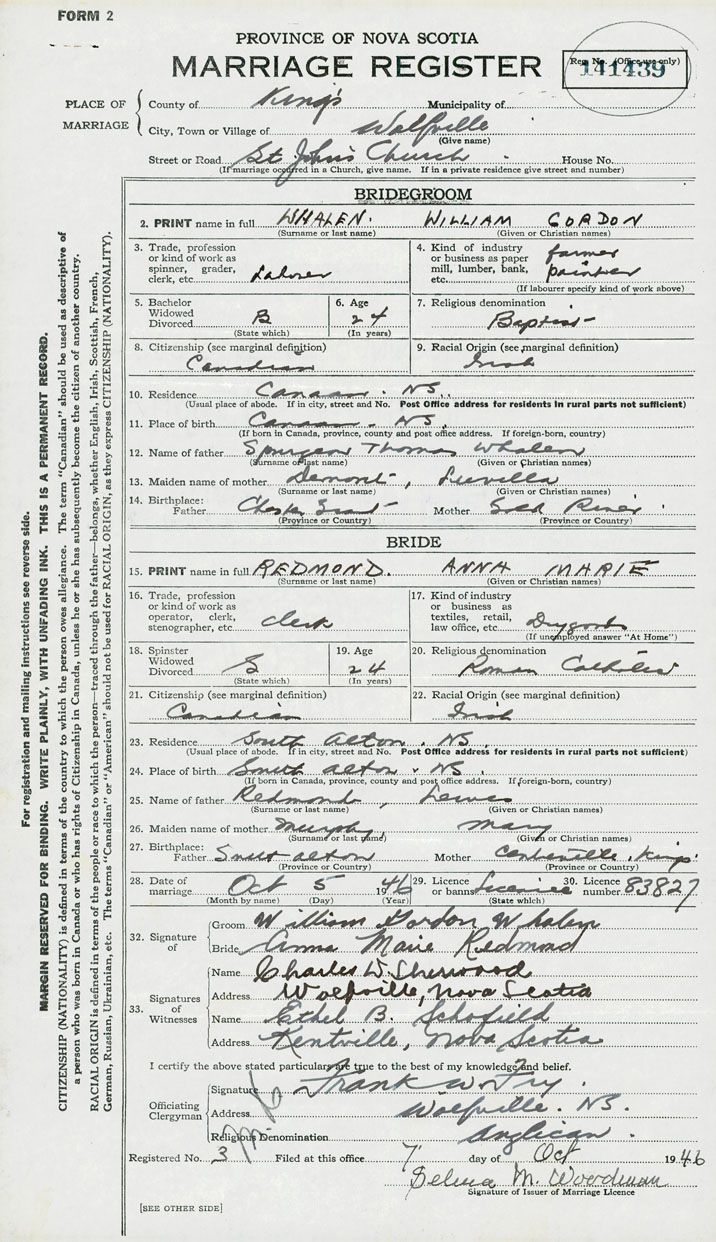 FORM 2
PROVINCE OF NOVA SCOTIA
MARRIAGE REGISTER
Reg. No. (Office use only)
141439
PLACE OF MARRIAGE
County of King's Municipality of
City, Town or Village of Wolfville
(Give name)
Street or Road St John's Church House No.
(If marriage occurred in a Church, give name. If in a private residence give street and number)
BRIDEGROOM
2. PRINT name in full WHALEN. WILLIAM GORDON
(Surname or last name) (Given or Christian names)
3. Trade, profession or kind of work as spinner, grader, clerk, etc. Laborer
4. Kind of industry or business as paper mill, lumber, bank, etc. farmer painter
(If labourer specify kind of work above)
5. Bachelor Widowed Divorced B
(State which)
6. Age 24
(In years)
7. Religious denomination Baptist
8. Citizenship (see marginal definition) Canadian
9. Racial Origin (see marginal definition) Irish
10. Residence Canaan. NS.
(Usual place of abode. If in city, street and No. Post Office address for residents in rural parts not sufficient)
11. Place of birth Canaan. NS.
(If born in Canada, province, county and post office address. If foreign-born, country)
12. Name of father Spurgeon Thomas Whalen
(Surname or last name) (Given or Christian names)
13. Maiden name of mother Demont, Luvilla
(Surname or last name) (Given or Christian names)
14. Birthplace: Father Chester Grant Mother Gold River
(Province or Country) (Province or Country)
BRIDE
15. PRINT name in full REDMOND. ANNA MARIE
(Surname or last name) (Given or Christian names)
16. Trade, profession or kind of work as operator, clerk, stenographer, etc. clerk
17. Kind of industry or business as textiles, retail, law office, etc. Drygoods
(If unemployed answer "At Home")
18. Spinster Widowed Divorced S
(State which)
19. Age 24
(In years)
20. Religious denomination Roman Catholic
21. Citizenship (see marginal definition) Canadian
22. Racial Origin (see marginal definition) Irish
23. Residence South Alton. NS.
(Usual place of abode. If in city, street and No. Post Office address for residents in rural parts not sufficient)
24. Place of birth South Alton. NS.
(If born in Canada, province, county and post office address. If foreign-born, country)
25. Name of father Redmond, Lewis
(Surname or last name) (Given or Christian names)
26. Maiden name of mother Murphy, Mary
(Surname or last name) (Given or Christian names)
27. Birthplace: Father South Alton Mother Kings
(Province or Country) (Province or Country)
28. Date of marriage Oct 5 1946 29. Licence or banns Licence 30. Licence number 83827
(Month by name) (Day) (Year) (State which)
32. Signature of
Groom William Gordon Whalen
Bride Anna Marie Redmond
33. Signatures of Witnesses
Name Charles W. Sherwood
Address Wolfville, Nova Scotia
Name Ethel B. Schofield
Address Kentville, Nova Scotia
I certify the above stated particulars are true to the best of my knowledge and belief.
Officiating Clergyman
Signature Frank W. Fry.
Address Wolfville. NS.
Religious Denomination Anglican.
Registered No. 3 Filed at this office 7 day of Oct 1946
Selina M. Woodman
Signature of Issuer of Marriage Licence
[SEE OTHER SIDE]
For registration and mailing instructions see reverse side.
MARGIN RESERVED FOR BINDING. WRITE PLAINLY, WITH UNFADING INK. THIS IS A PERMANENT RECORD.
CITIZENSHIP (NATIONALITY) is defined in terms of the country to which the person owes allegiance. The term "Canadian" should be used as descriptive of
a person who was born in Canada or who has rights of Citizenship in Canada, unless he or she has subsequently become the citizen of another country.
RACIAL ORIGIN is defined in terms of the people or race to which the person—traced through the father—belongs, whether English, Irish, Scottish, French,
German, Russian, Ukrainian, etc. The terms "Canadian" or "American" should not be used for RACIAL ORIGIN, as they express CITIZENSHIP (NATIONALITY).